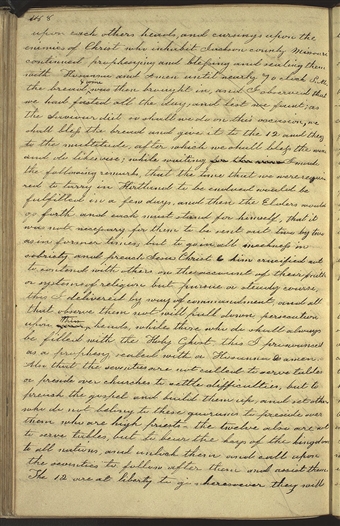 upon each others heads, and cursings upon the
enemies of Christ who inhabit Jackson county Missouri
continued prophesying and blessing and sealing them
with Hosanna and Amen until nearly 7 o clock P.M.
the bread & wine was then brought in, and I observed that
we had fasted all the day; and lest we faint; as
the Saviour did so shall we do on this occasion, we
shall bless the bread and give it to the 12 and they
to the multitude, after which we shall bless the wine
and do likewise; while waiting I made
the following remarks, that the time that we were requi-
red to tarry in Kirtland to be endued would be
fulfilled in a few days, and then the Elders would
go forth and each must stand for himself, that it
was not necessary for them to be sent out two by two
as in former times, but to go in all meekness in
sobriety and preach Jesus Christ & him crucified not
to contend with others on the account of their faith
or systems of religion but pursue a steady course,
this I delivered by way of commandment, and all
that observe them not will pull down persecution
upon their heads, while those who do shall always
be filled with the Holy Ghost, this I pronounced
as a prophesy, sealed with a Hosanna & amen.
Also that the seventies are not called to serve tables
or preside over churches to settle difficulties, but to
preach the gospel and build them up, and set others
who do not belong to these quorums to preside over
them who are high priests - the twelve also are not
to serve tables, but to bear the keys of the kingdom
to all nations, and unlock them and call upon
the seventies to follow after them and assist them
The 12 are at liberty to go wheresoever they will